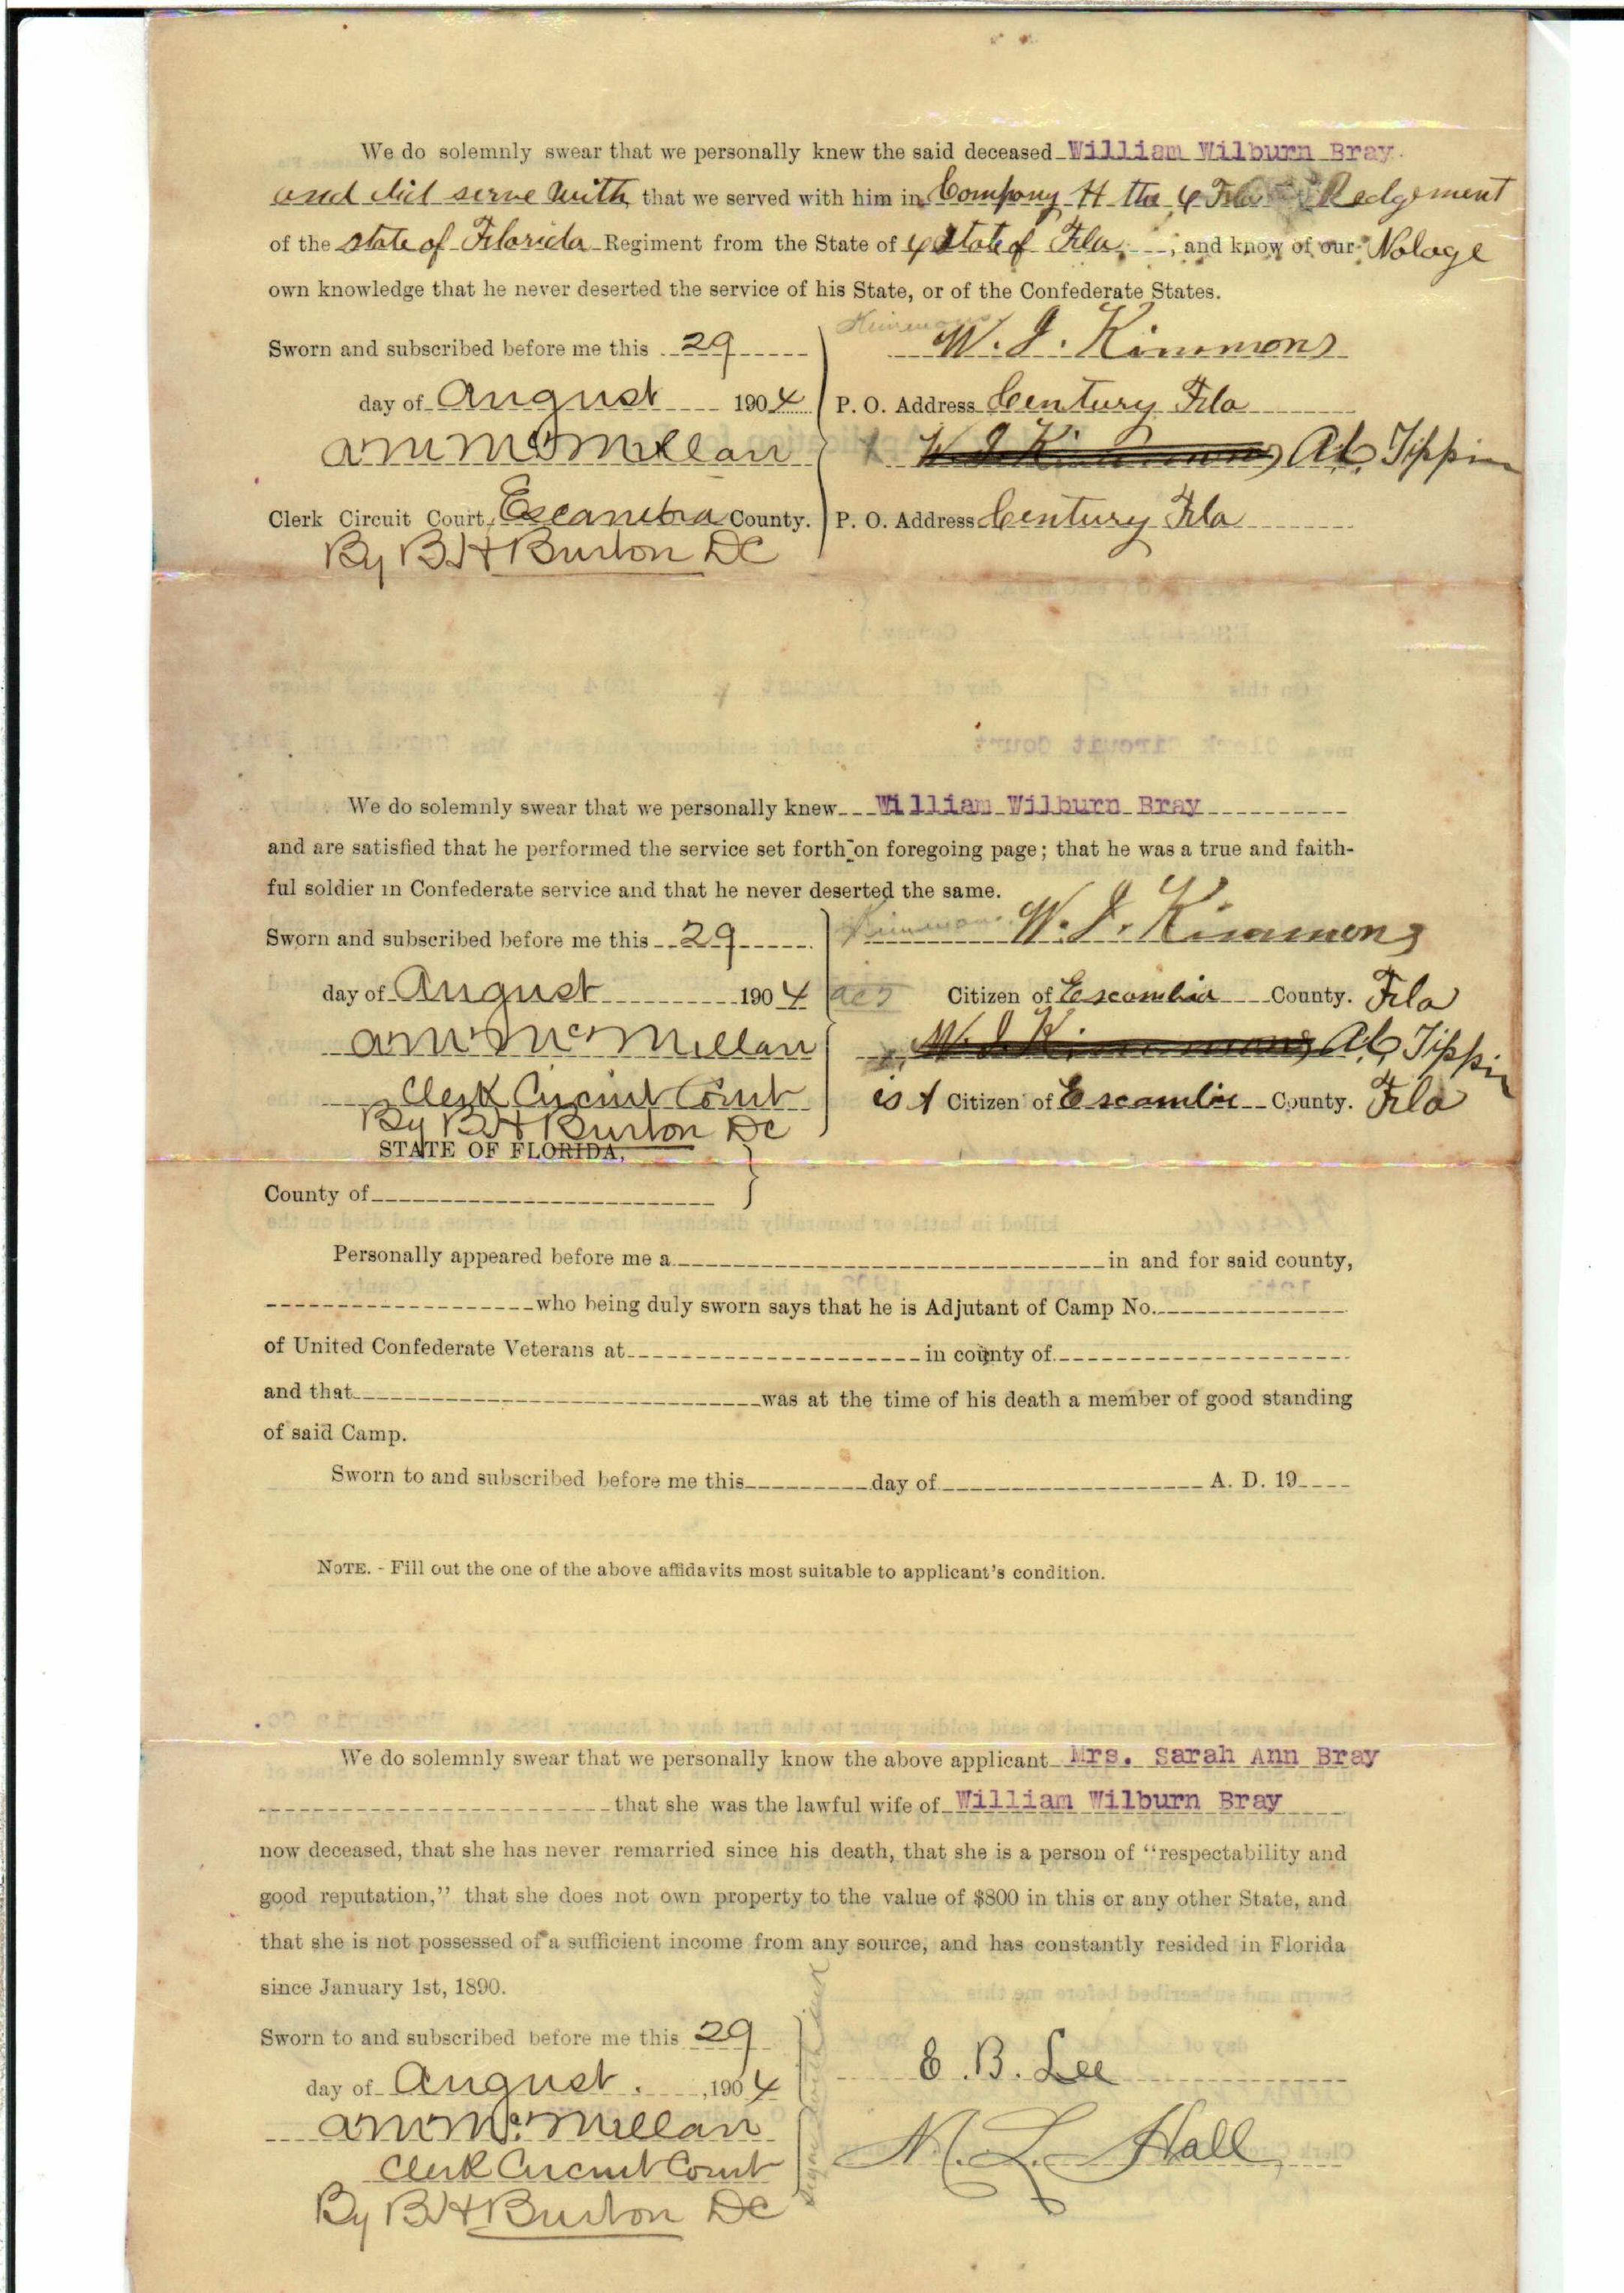 We do solemnly swear that we personally knew the said deceased William Wilburn Bray
and did serve with that we served with him in Company H the 4 Fla Redgement
of the state of Florida Regiment from the State of 4 State of Fla, and know of our Nolage
own knowledge that he never deserted the service of his State, or of the Confederate States.
Kimmons
Sworn and subscribed before me this 29 W. J. Kimmons
day of August 1904 P. O. Address Century Fla
A M McMillan W J Kimmons A.C. Tippin
Clerk Circuit Court, Escambia County. P. O. Address Century Fla
By B H Burton DC
We do solemnly swear that we personally knew William Wilburn Bray
and are satisfied that he performed the service set forth on foregoing page; that he was a true and faith-
ful soldier in Confederate service and that he never deserted the same.
Sworn and subscribed before me this 29 Kimmons W. J. Kimmons
day of August 1904 Citizen of Escambia County. Fla
A M McMillan W. J. Kimmons A.C. Tippin
Clerk Circuit Court is A Citizen of Escambia County. Fla
By B H Burton DC
STATE OF FLORIDA,
County of
Personally appeared before me a in and for said county,
who being duly sworn says that he is Adjutant of Camp No.
of United Confederate Veterans at in county of
and that was at the time of his death a member of good standing
of said Camp.
Sworn to and subscribed before me this day of A. D. 19
NOTE. - Fill out the one of the above affidavits most suitable to applicant's condition.
We do solemnly swear that we personally know the above applicant Mrs. Sarah Ann Bray
that she was the lawful wife of William Wilburn Bray
now deceased, that she has never remarried since his death, that she is a person of "respectability and
good reputation," that she does not own property to the value of $800 in this or any other State, and
that she is not possessed of a sufficient income from any source, and has constantly resided in Florida
since January 1st, 1890.
Sworn to and subscribed before me this 29
day of August. , 1904 E. B. Lee
A M McMillan M. L. Hall
Clerk Circuit Court
By B H Burton DC